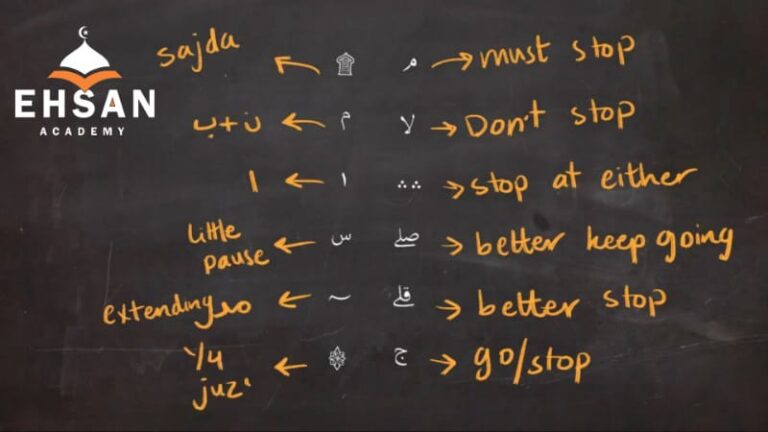 EHSAN
ACADEMY
sajda ← ۩ م → must stop
ن + ب ← م لا → Don't stop
ا ← ا ∴ ∴ → stop at either
little pause ← س صلے → better keep going
extending مد ← ~ قلے → better stop
1/4 juz' ← ۞ ج → go/stop